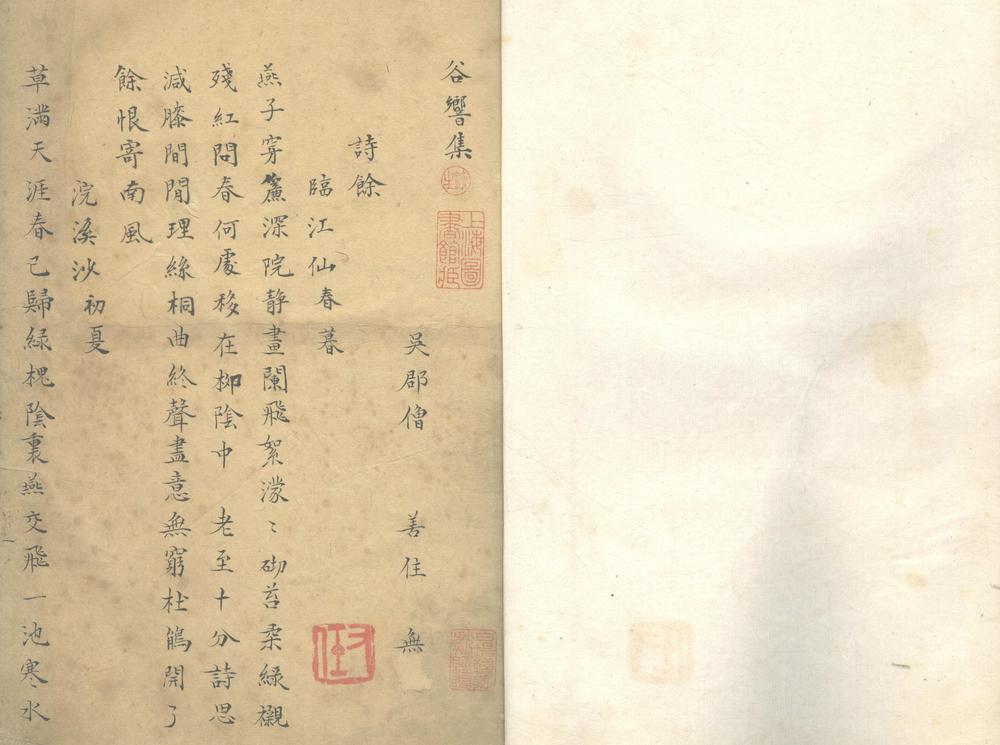 谷響集
上海圖書館藏
吳郡僧 善住 無
詩餘
臨江仙春暮
燕子穿簾深院静晝闌飛絮濛〻砌苔柔綠襯
殘紅問春何處移在柳陰中 老至十分詩思
減膝間閒理絲桐曲終聲盡意無窮杜鵑開了
餘恨寄南風
浣溪沙初夏
草滿天涯春已歸綠槐陰裏燕交飛一池寒水